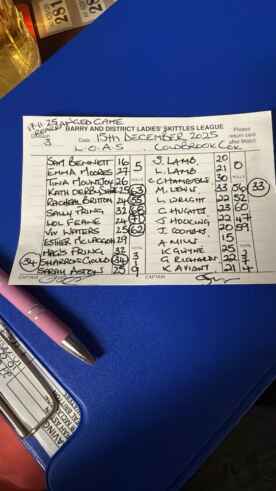 281
17-11-25 ARRANGED GAME
BARRY AND DISTRICT LADIES' SKITTLES LEAGUE
Please return card after match
15TH DECEMBER 2025
3
L.O.A.S. COLDBROOK
SAM BENNETT 16 5 J. LAMB. 20 0
EMMA MOORES 27 L. LAMB. 21
TINA MOUNTJOY 26 C CHAMBERS 30
KATH DERBYSHIRE 25 63 M. LEWIS. 33 56 33
RACHEAL BRITTON 24 55 L. WRIGHT 22 52
SALLY PRING 32 C HUGHES 23 60
LOL FRAME 24 J HOCKING 22 47
VIV WATERS 25 62 J. COOMBS. 20 59
ESTHER 29 A MILLS 15
MAGS PRING 32 K GWYNE 25
34 SHARRON GOULD 34 G RICHARDS 22
SARAH ASTON 25 9 K AVIANT 21 4
CAPTAIN
CAPTAIN